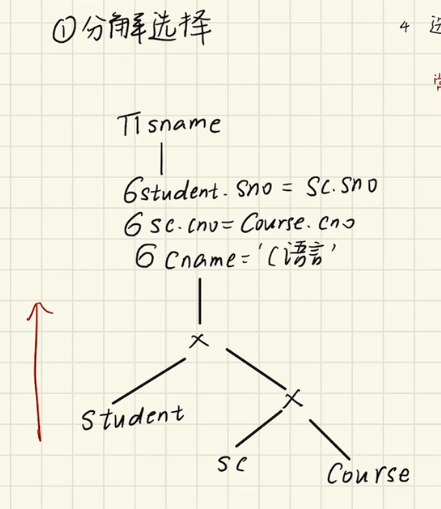 ①分解选择
4 选
Πsname
σstudent.sno = sc.sno
σ sc.cno = Course.cno
σ Cname = 'C语言'
×
Student
×
sc
Course